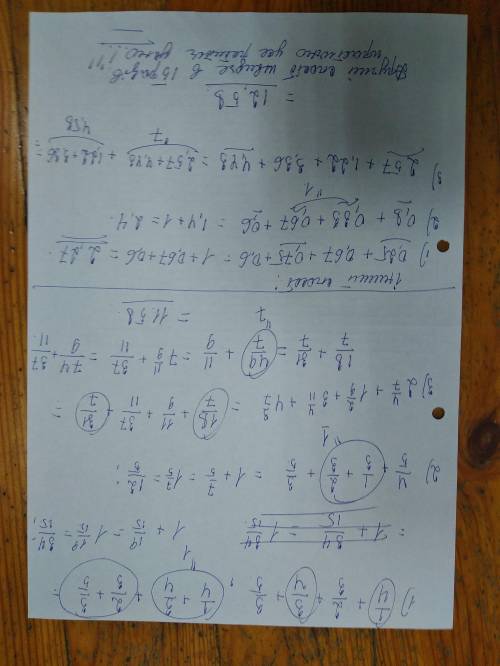 1) 1/4 + 2/3 + 3/4 + 3/5 ; 1/4 + 3/4 + 2/3 + 3/5 =
"1
= 1 + 34/15 = 1 34/15 1 + 19/15 = 1 19/15 = 34/15;
2) 4/5 + 1/3 + 2/3 + 3/5 = 1 + 7/5 = 1 7/5 = 12/5;
"1
3) 2 4/7 + 1 2/9 + 3 4/11 + 4 3/7 = 18/7 + 11/9 + 37/11 + 31/7 =
18/7 + 31/7 = 49/7 + 11/9 = 7 11/9 + 37/11 = 74/9 + 37/11
"7 = 11.58.
Інший спосіб:
1) 0,25 + 0,67 + 0,75 + 0,6 = 1 + 0,67 + 0,6 = 2,27.
2) 0,8 + 0,33 + 0,67 + 0,6 = 1,4 + 1 = 2,4
"1
3) 2,57 + 1,22 + 3,36 + 4,43 = 2,57 + 4,43 + 1,22 + 3,36 =
"7 4,58
= 12,58
Другий спосіб швидше в 15 разів
практично усе